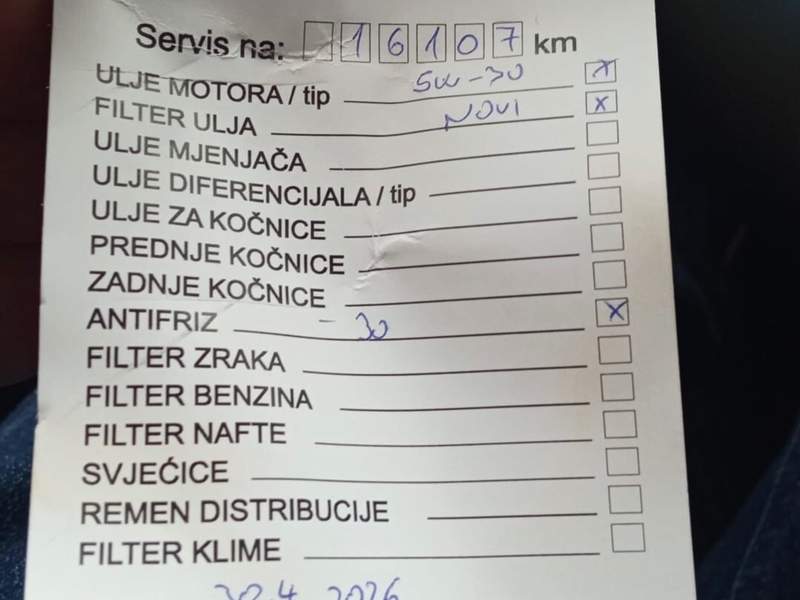 Servis na: 16107 km
ULJE MOTORA / tip 5W-30 x
FILTER ULJA NOVI x
ULJE MJENJAČA
ULJE DIFERENCIJALA / tip
ULJE ZA KOČNICE
PREDNJE KOČNICE
ZADNJE KOČNICE
ANTIFRIZ -30 x
FILTER ZRAKA
FILTER BENZINA
FILTER NAFTE
SVJEĆICE
REMEN DISTRIBUCIJE
FILTER KLIME
30.4.2026